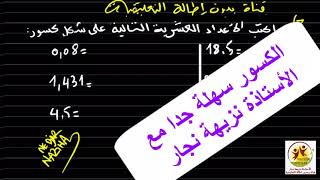 قناة بدون إطالة التعليمية
اكتب الأعداد العشرية التالية على شكل كسور:
0,08=
18,5=
1,431=
4,5=
الكسور سهلة جدا مع
الأستاذة نزيهة نجار
NEJJAR
NAZIHA